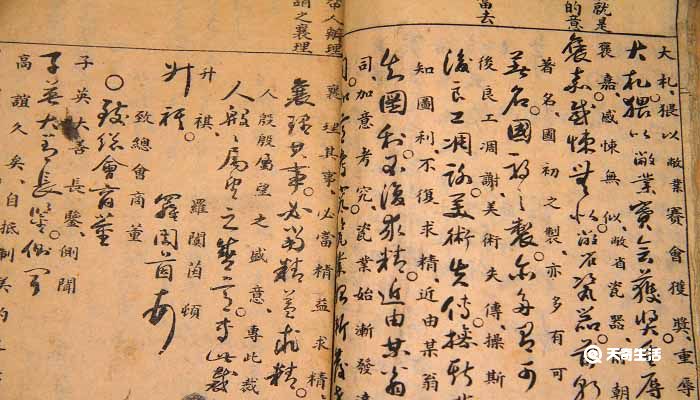 就是
的意
當去
大札.猥以敝業賽會獲獎.重辱
大札猥以敝業賽會獲獎重辱
褒嘉.感悚無似.敝省瓷器.前朝
褒嘉感悚無似敝省瓷器前朝
著名.國初之製.亦多有可
名國初之製亦多有可
後良工凋謝.美術失傳.操斯
後良工凋謝美術失傳操斯
知圖利.不復求精.近由某翁
知圖利不復求精近由某翁
司.加意考究.瓷業始漸發達
人辦理
謂之襄理
襄理其事.必當精益求精
襄理其事必當精益求精
人殷殷屬望之盛意.專此裁
人殷殷屬望之盛意專此裁
升祺. 羅闓茵頓
升祺 羅闓茵頓
致總會商董
致總會商董
子英大善長鑒側聞
子英大善長鑒側聞
高誼久矣.自抵制美約
天奇生活